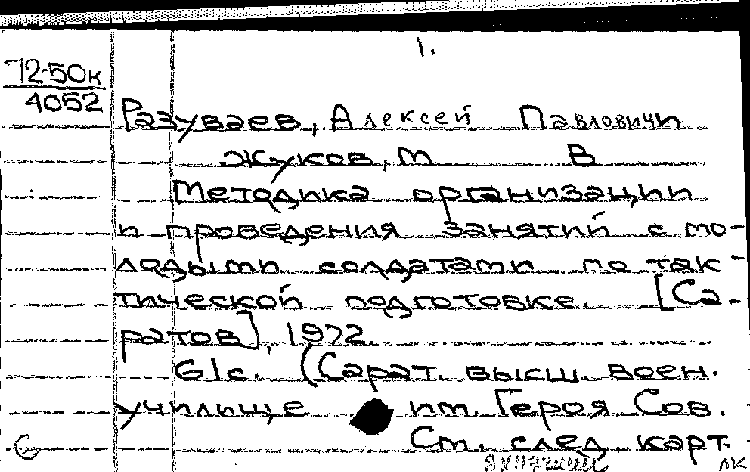 1.
72-50к
4052
Разуваев, Алексей Павлович и
Жуков, М В
Методика организации
и проведения занятий с мо-
лодыми солдатами по так-
тической подготовке. [Са-
ратов], 1972.
61с. (Сарат. высш. воен.
училище им. Героя Сов.
С См. след. карт.
лк